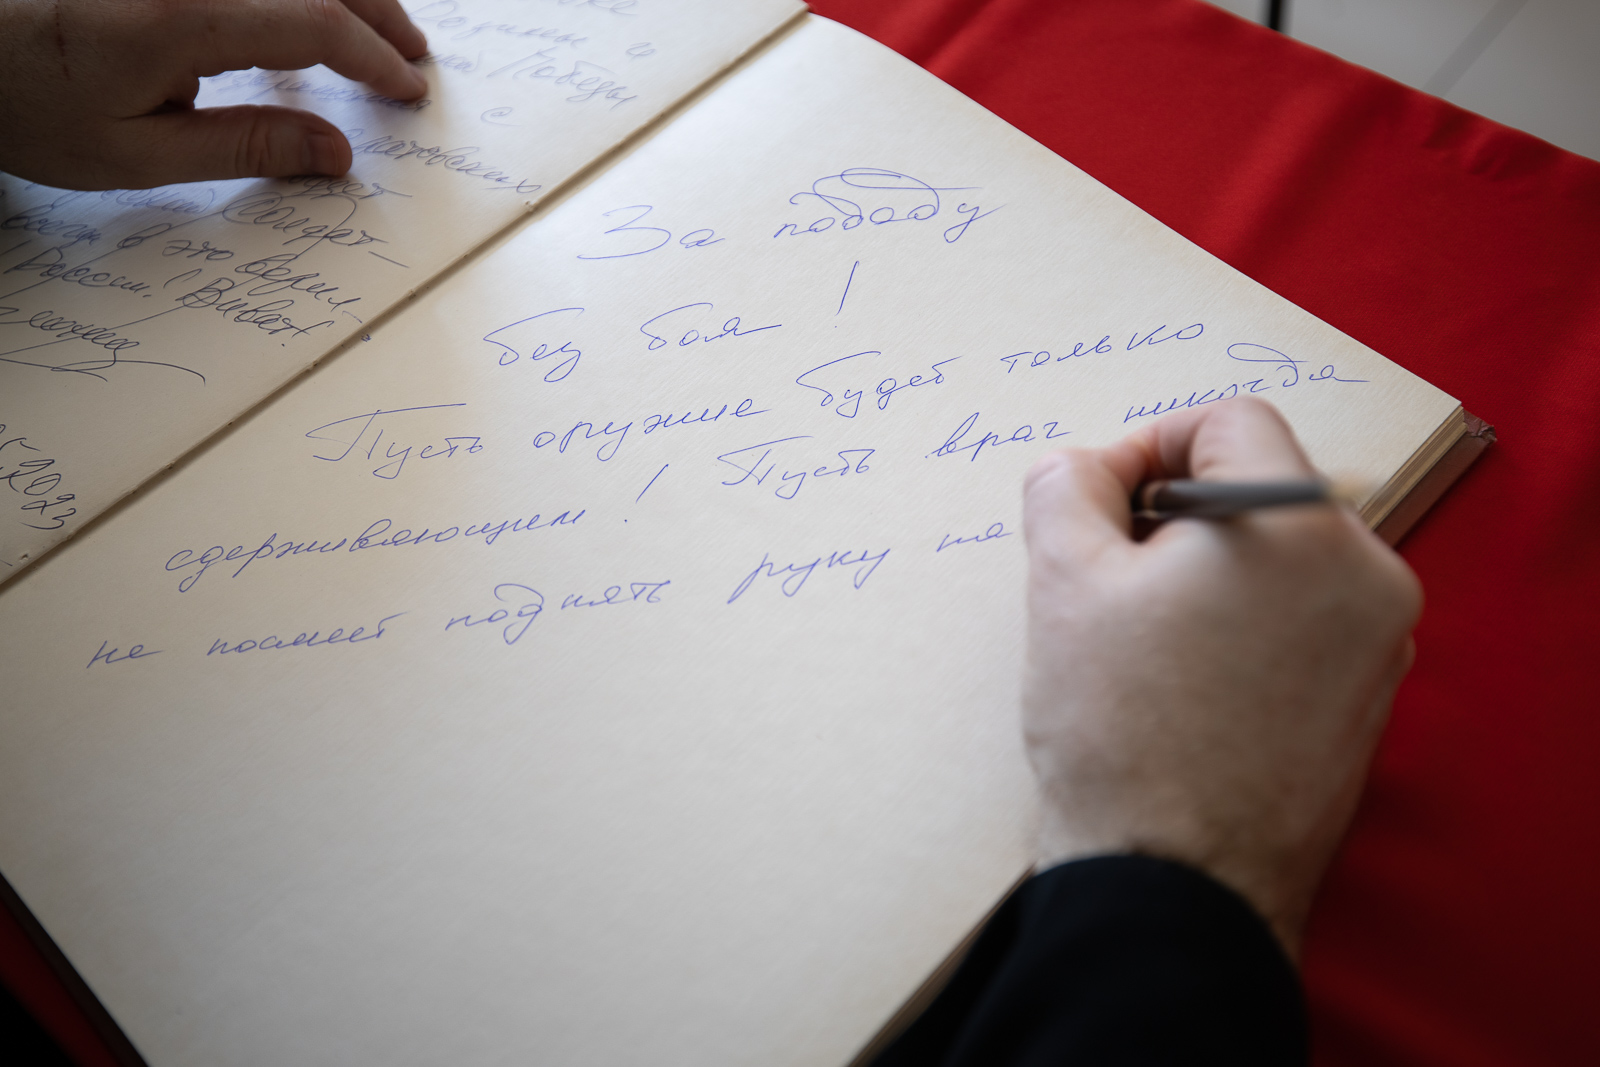 Родины и
Победы
с
натовских
Солдат –
в это верил–
России! Виват!
2023
За победу
без боя!
Пусть оружие будет только
сдерживающим! Пусть враг никогда
не посмеет поднять руку на